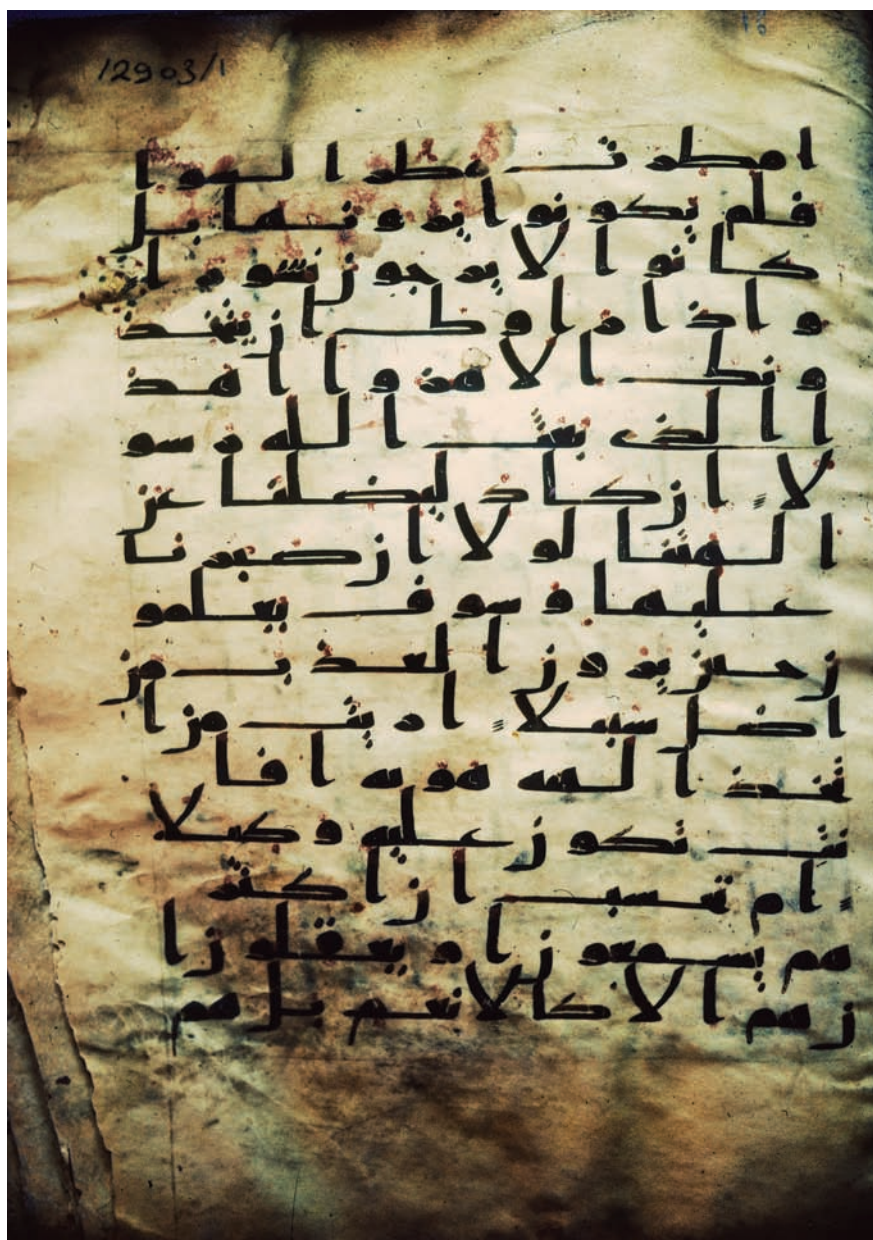 12903/1
امطرت مطر السو ا
فلم يكونوا يرونها بل
كانوا لا يرجون نشورا
واذا راوك ان يتخذ
ونك الا هزوا اهذ
ا الذى بعث الله رسو
لا ان كاد ليضلنا عن
الهتنا لولا ان صبرنا
عليها وسوف يعلمو
ن حين يرون العذب من
اضل سبيلا اريت من ا
تخذ الهه هويه افا
نت تكون عليه وكيلا
ام تحسب ان اكثر
هم يسمعون او يعقلون ا
ن هم الا كالانعم بل هم